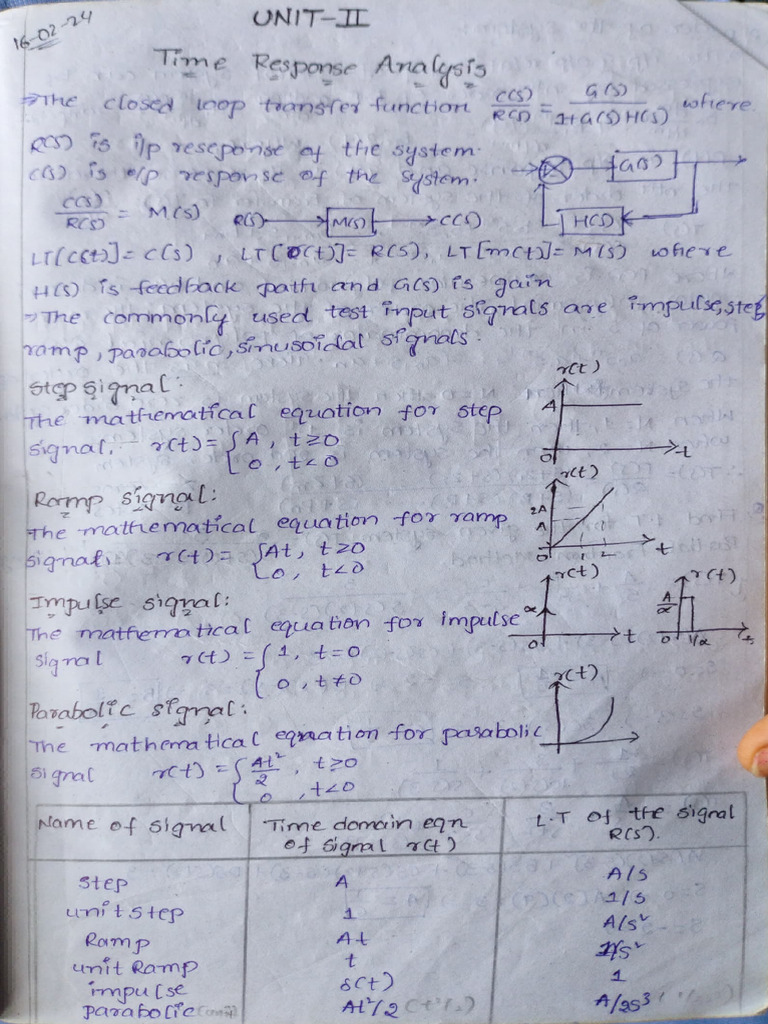 16-02-24
UNIT-II
Time Response Analysis
⇒The closed loop transfer function C(S)/R(S) = G(S)/1+G(S)H(S) where
R(S) is i/p reseponse of the system.
C(S) is o/p response of the system.
G(S)
H(S)
C(S)/R(S) = M(S) R(S) → M(S) → C(S)
LT[C(t)]= C(S) , LT[r(t)]= R(S), LT[m(t)]= M(S) where
H(S) is feedback path and G(S) is gain
⇒The commonly used test input signals are impulse, step,
ramp, parabolic, sinusoidal signals.
Step signal:
The mathematical equation for step
signal, r(t) = { A, t≥0
0, t<0
r(t)
A
0
t
Ramp signal:
The mathematical equation for ramp
signal, r(t) = { At, t≥0
0, t<0
r(t)
2A
A
0 1 2 t
Impulse signal:
The mathematical equation for impulse
signal r(t) = { 1, t=0
0, t≠0
r(t)
∝
0 t
r(t)
A/∝
0 1/∝ t
Parabolic signal:
The mathematical eqnation for parabolic
signal r(t) = { At²/2, t≥0
0, t<0
r(t)
Name of signal Time domain eqn of signal r(t) L.T of the signal R(S).
step A A/S
unit step 1 1/S
Ramp At A/S²
unit Ramp t 1/S²
impulse δ(t) 1
parabolic At²/2 A/2S³